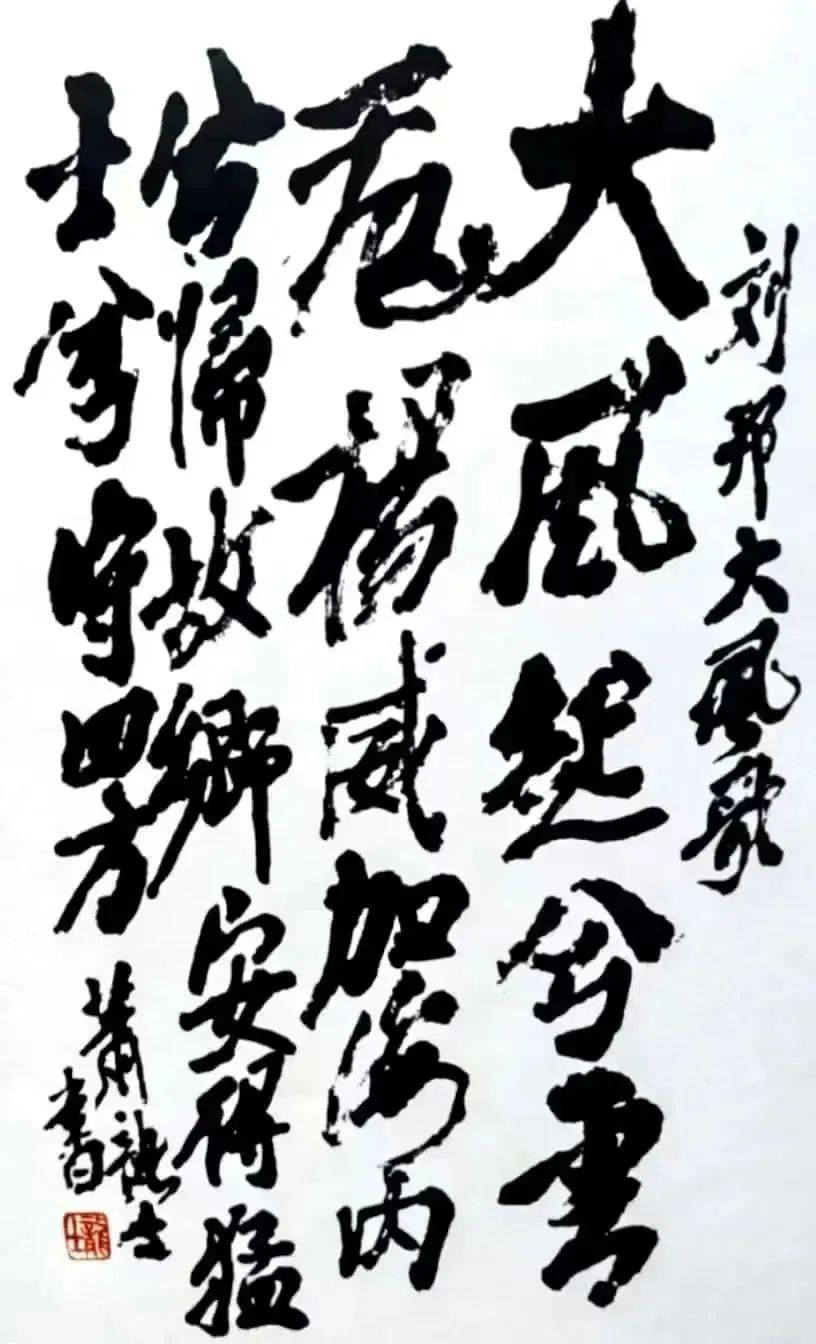 刘邦大風歌
大風起兮雲
飛揚威加海内
兮歸故鄉安得猛
士兮守四方
蕭龍士
書
龍士